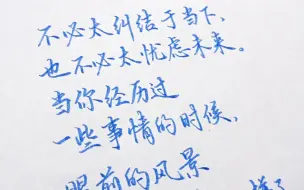 不必太纠结于当下,
也不必太忧虑未来。
当你经历过
一些事情的时候,
眼前的风景